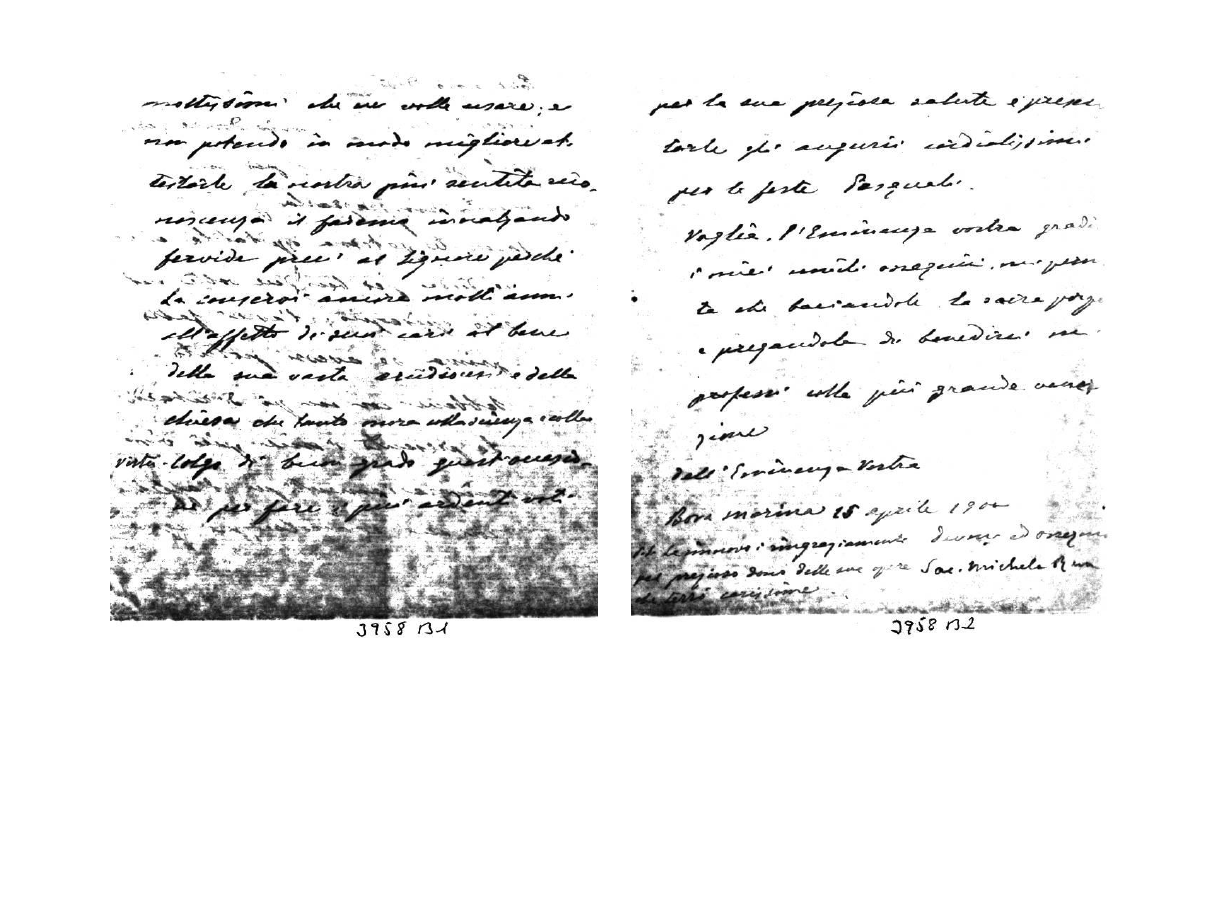 moltissimi che ne volle usare; e
non potendo in modo migliore at-
testarle la nostra più sentita rico-
noscenza il faremo innalzando
fervide preci al Signore perché
La conservi ancora molti anni
all'affetto di suoi cari al bene
della sua vasta erudizione e della
chiesa che tanto onora colla scienza e colla
virtù. Colgo di buon grado quest'occasio-
ne per fare i più ardenti voti
3958 B1
per la sua preziosa salute e presen-
tarle gli auguri cordialissimi
per le feste Pasquali.
Voglia, l'Eminenza vostra gradi
i miei umili ossequi, mi perm
ta che baciandole la sacra porpo
e pregandola di benedirmi mi
professi colla più grande vener
zione
dell'Eminenza Vostra
Bova Marina 15 aprile 1900
Le rinnovo i ringraziamenti
per prezioso dono delle sue opere
carissime
Devmo ed ossequio
Sac. Michele Rua
3958 B2